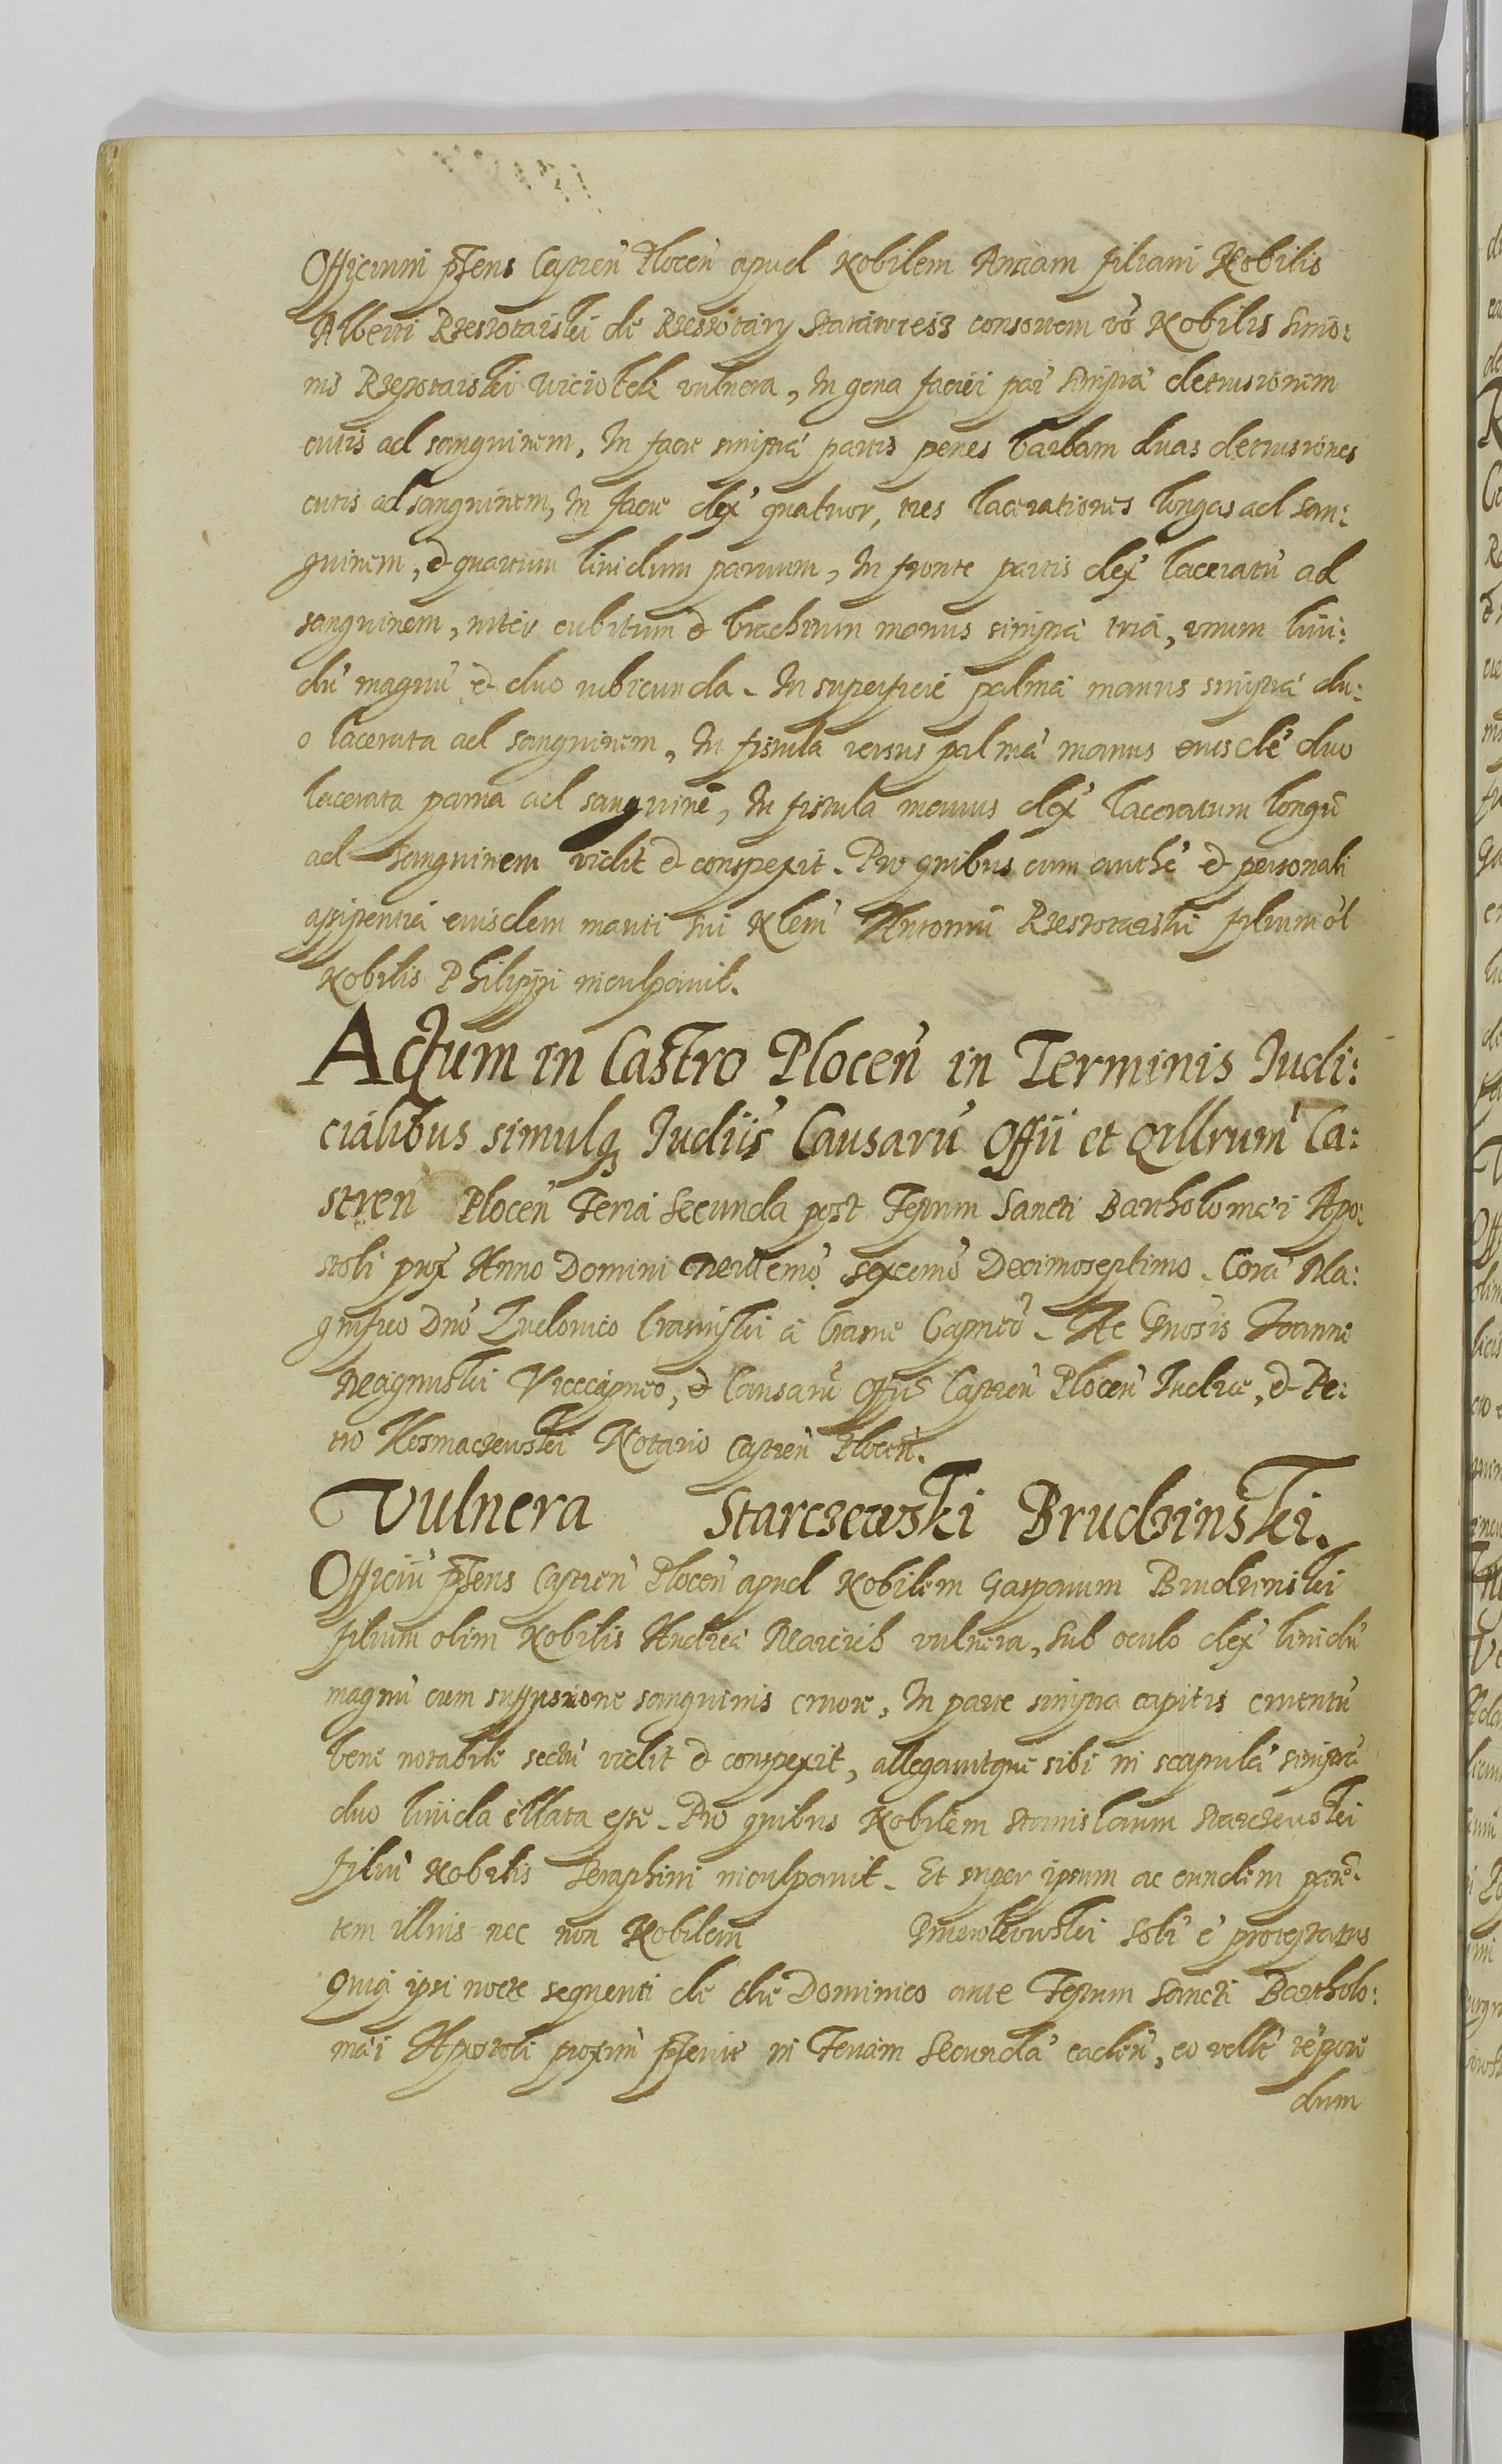 Officium pn̄tens Castren̄ Plocen̄ apud Nobilem Annam filiam Nobilis
Alberti Rzeszotarski de Rzeszotary Stara wiesz consortem vō Nobilis Simo:
nis Rzeszotarski Wiciotek vulnera, In gena faciei par̄ sinistrā detrusionem
cutis ad sanguinem, In facie sinistrā partis penes barbam duas detrusiones
cutis ad sanguinem, In facie dex̄ quatuor, tres lacerationes longas ad san:
guinem, et quartum lividum parvum, In fronte partis dex̄ laceratū ad
sanguinem, inter cubitum et brachium manus sinistrā tria, unum livi:
dū magnū et duo rubicunda. In superficie palmā manus sinistrā du:
o lacerata ad sanguinem, In fistula versus palmā manus eiusdē duo
lacerata parva ad sanguinē, In fistula manus dex̄ laceratum longū
ad sanguinem vidit et conspexit. Pro quibus cum auth̄e et personali
assistentia eiusdem mariti sui Nlem̄ Antonium Rzeszotarski filium ol̄
Nobilis Philippi inculpavit.
Actum in Castro Plocen̄ in Terminis Judi:
cialibus simulq3 Judiis̄ Causarū Offii et Qillrum̄ Ca:
stren Plocen̄ Feria Secunda post Festum Sancti Bartholomæi Apo:
stoli prox̄ Anno Domini Millemō Sexcemō Decimoseptimo. Corā Ma:
gnifico Dnō Ludovico Crasinski a Crasne Capneō. Ac Gnosis Joanne
Magnuski Vicecapneo, et Causarū Offii Castren̄ Plocen̄ Judice, et Pe:
tro Kosmaczewski Notario Castren̄ Plocen̄.
Vulnera Starczewski Brudzinski.
Officiū pn̄tens Castren̄ Plocen̄ apud Nobilem Gasparum Brudzinski
filium olim Nobilis Andreæ Marcich vulnera, Sub oculo dex̄ lividū
magnū cum suffusione sanguinis cruore, In parte sinistra capitis cruentū
bene notabile sectū vidit et conspexit, allegavitque sibi in scapulā sinistrā
duo livida illata esse. Pro quibus Nobilem Stanislaum Starczewski
filiū Nobilis Seraphini inculpavit. Et super ipsum ac eundem parē:
tem illius nec non Nobilem Gniewkowski Soli ē protestatus
Quia ipsi nocte sequenti de die Dominico ante Festum Sancti Bartholo:
mæi Apostoli proxim̄ pn̄terite in Feriam Secundā eadem̄, eo vellē tēpore
dum